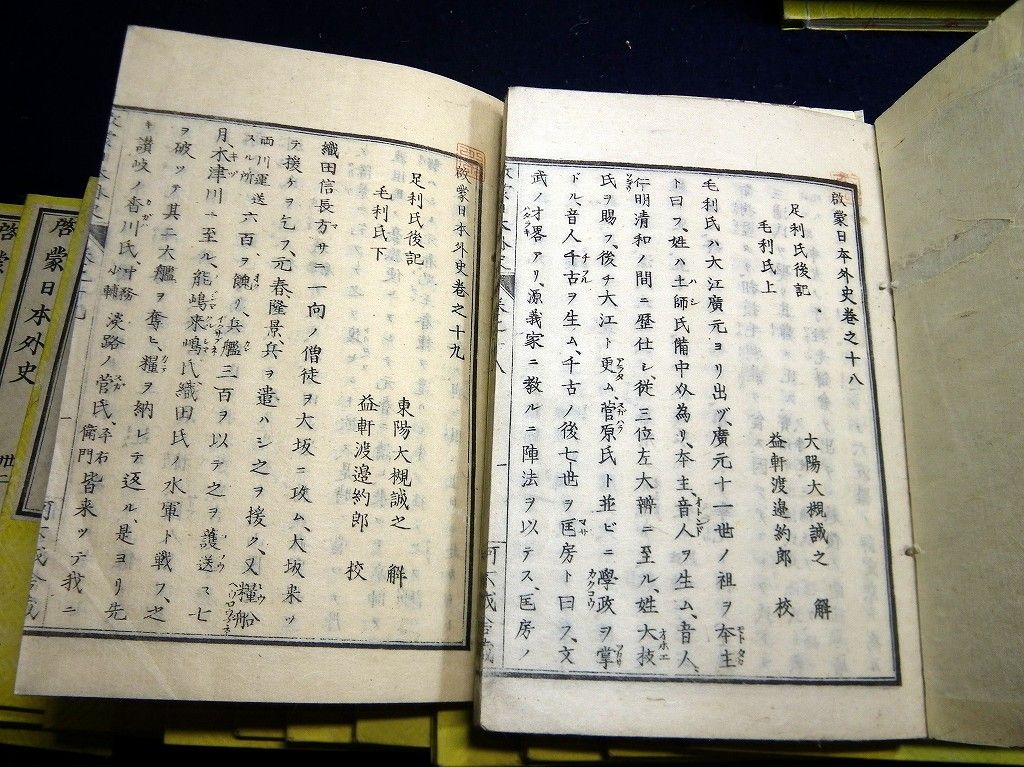 啟蒙日本外史卷之十八
足利氏後記
毛利氏上
大陽大槻誠之 解
益軒渡邉約郎 校
毛利氏ハ大江廣元ヨリ出ヅ、廣元十一世ノ祖ヲ本主
ト曰フ、姓ハ土師氏備中介為リ、本主、音人ヲ生ム、音人、
仁明清和ノ間ニ歴仕シ、従三位左大辨ニ至ル、姓大枝
氏ヲ賜フ、後チ大江ト更ム、菅原氏ト並ビニ學政ヲ掌
ドル、音人千古ヲ生ム、千古ノ後七世ヲ匡房ト曰フ、文
武ノ才畧アリ、源義家ニ教ルニ陣法ヲ以テス、匡房ノ
啟蒙日本外史卷之十九
足利氏後記
毛利氏下
東陽大槻誠之 解
益軒渡邉約郎 校
織田信長方サニ一向ノ僧徒ヲ大坂ニ攻ム、大坂来ッ
テ援ケヲ乞フ、元春、隆景、兵ヲ遣ハシ之ヲ援ク、又糧船
六百ヲ餽リ、兵艦三百ヲ以テ之ヲ護送ス七
両川運送スル所
月、木津川ニ至ル、能嶋来嶋氏、織田氏ノ水軍ト戦フ、之
ヲ破ッテ其二大艦ヲ奪ヒ、糧ヲ納レテ返ル、是ヨリ先
キ讃岐ノ香川氏中務少輔淡路ノ菅氏、平右衛門皆来ッテ我ニ
啓蒙日本外史
啓蒙